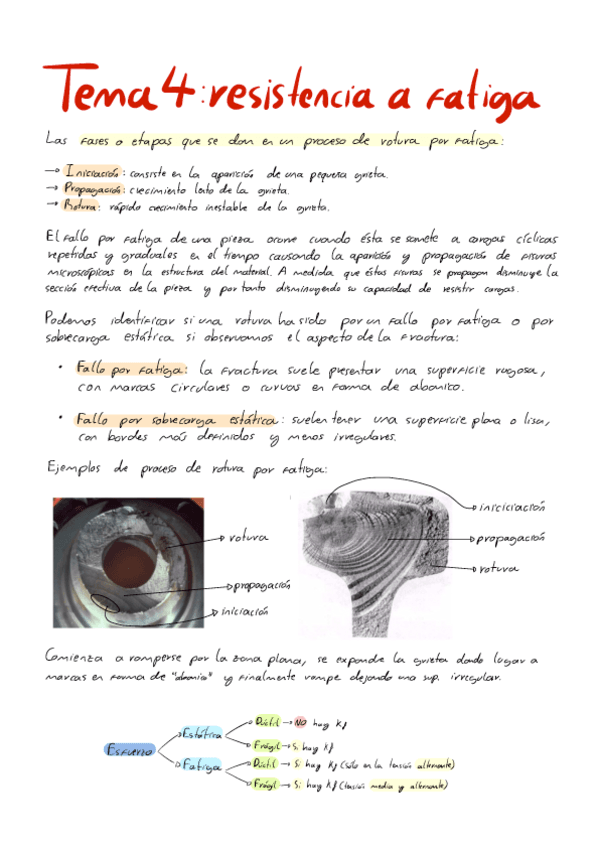 Tema 4: resistencia a fatiga
Las fases o etapas que se dan en un proceso de rotura por fatiga:
→ Iniciación: consiste en la aparición de una pequeña grieta.
→ Propagación: crecimiento lento de la grieta.
→ Rotura: rápido crecimiento inestable de la grieta.
El fallo por fatiga de una pieza ocurre cuando ésta se somete a cargas cíclicas
repetidas y graduales en el tiempo causando la aparición y propagación de fisuras
microscópicas en la estructura del material. A medida que éstas fisuras se propagan disminuye la
sección efectiva de la pieza y por tanto disminuyendo su capacidad de resistir cargas.
Podemos identificar si una rotura ha sido por un fallo por fatiga o por
sobrecarga estática si observamos el aspecto de la fractura:
• Fallo por fatiga: la fractura suele presentar una superficie rugosa,
con marcas circulares o curvas en forma de abanico.
• Fallo por sobrecarga estática: suelen tener una superficie plana o lisa,
con bordes más definidos y menos irregulares.
Ejemplos de proceso de rotura por fatiga:
rotura
propagación
iniciación
iniciciación
propagación
rotura
Comienza a romperse por la zona plana, se expande la grieta dando lugar a
marcas en forma de "abanico" y finalmente rompe dejando una sup. irregular.
Esfuerzo
Estática
Dúctil → NO hay Kf
Frágil → Si hay Kf
Fatiga
Dúctil → Si hay Kf (sólo en la tensión alternante)
Frágil → Si hay Kf (tensión media y alternante)